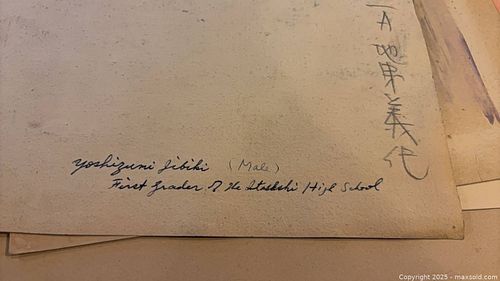 一A 地東義代
Yoshizumi Jibiki (Male)
First Grader of the Itsukshi High School
Copyright © 2025 - maxsold.com